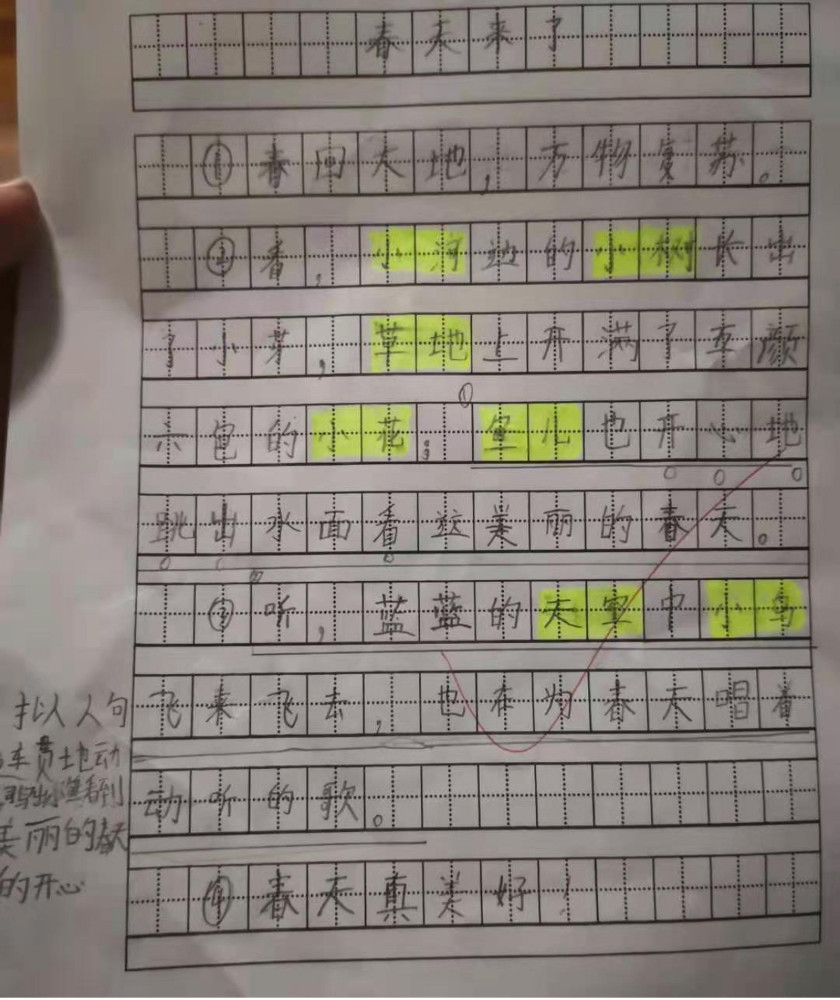 春天来了
①春回大地，万物复苏。
②看，小河边的小树长出
了小芽，草地上开满了五颜
六色的小花；鱼儿也开心地
跳出水面看这美丽的春天。
③听，蓝蓝的天空中小鸟
飞来飞去，也在为春天唱着
动听的歌。
④春天真美好！
拟人句
地动
看到
美丽的春天
的开心